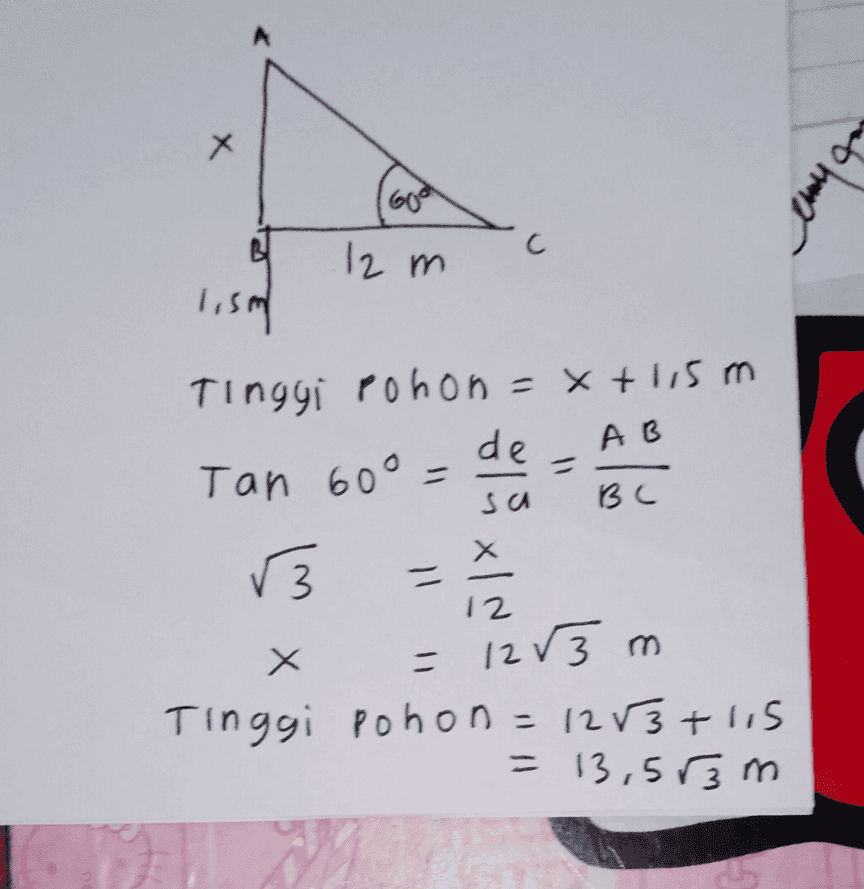 A
x
60°
B
12 m
C
1,5m
TInggi Pohon = x + 1,5 m
Tan 60° = de/sa = AB/BC
√3 = x/12
x = 12√3 m
TInggi Pohon = 12√3 + 1,5
= 13,5√3 m